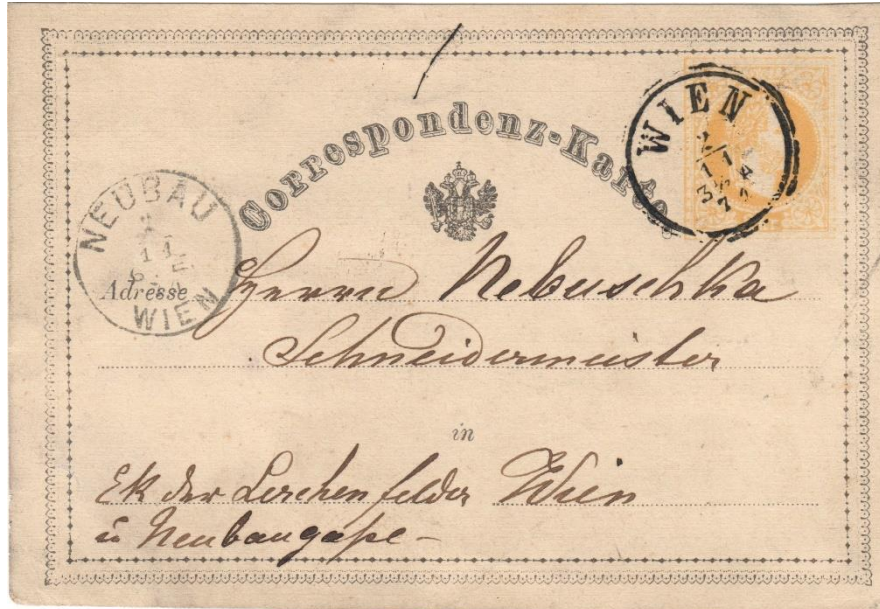 Correspondenz-Karte.
WIEN
2
11
NEUBAU
2
11
WIEN
Adresse
Herrn Nebuschka
Schneidermeister
in
Ek der Lerchenfelder Wien
u Neubaugaße